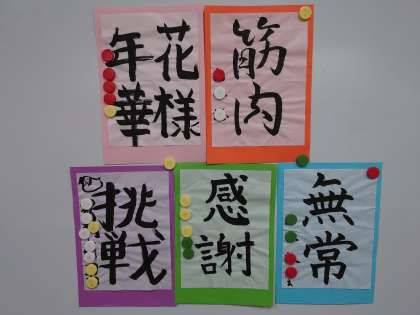 花様
年華
筋肉
挑戦
感謝
無常